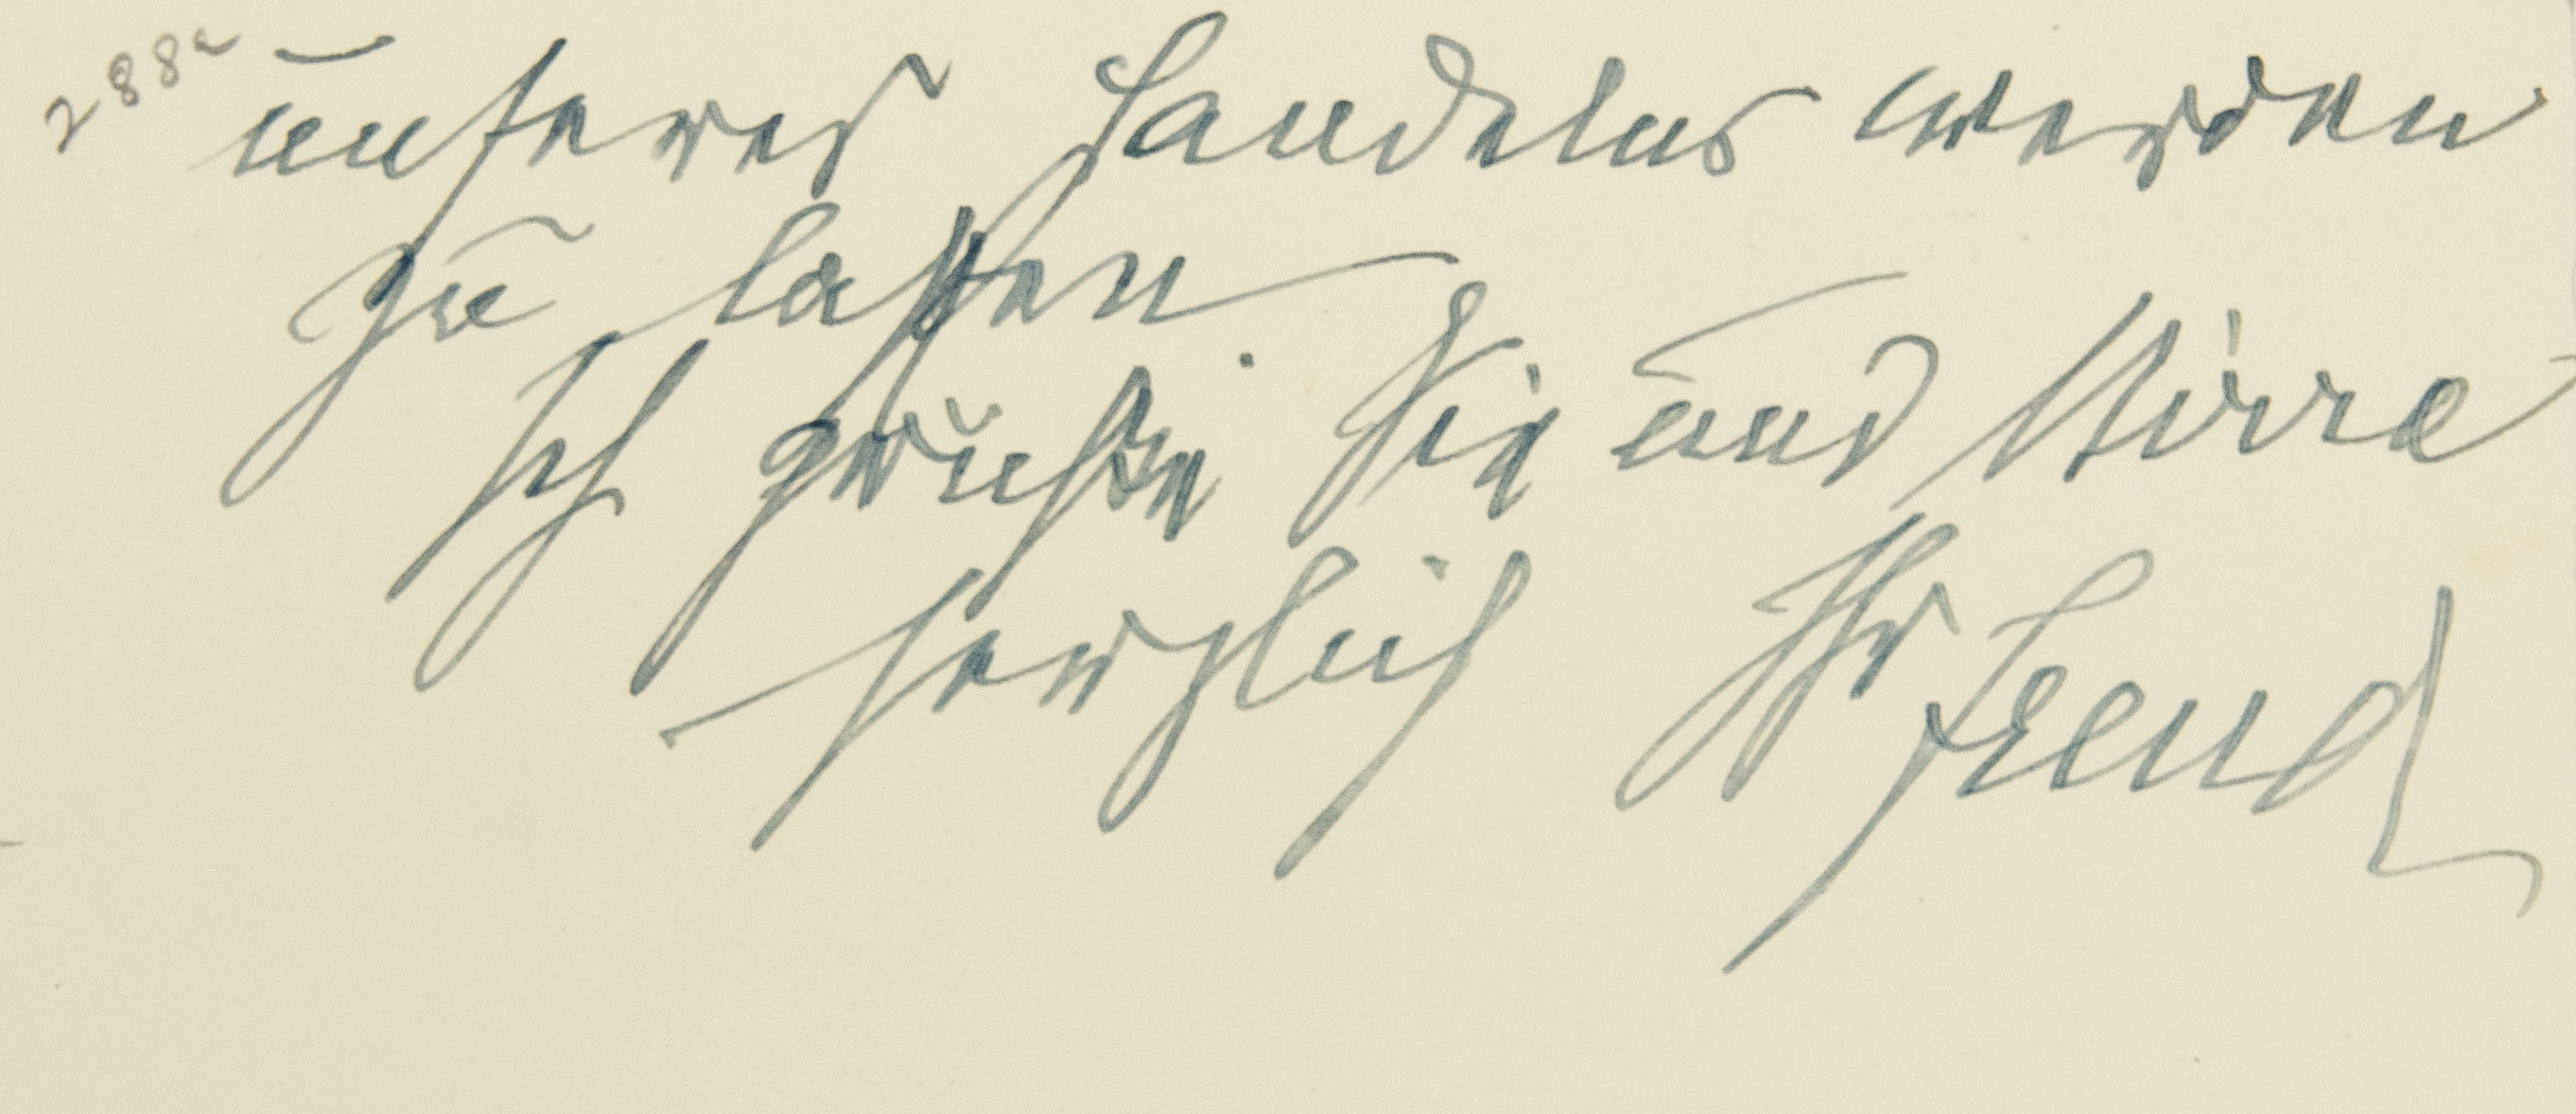 288a
unseres Handelns werden
zu lassen.
Ich grüße Sie und Mirra
herzlich Ihr
Freud